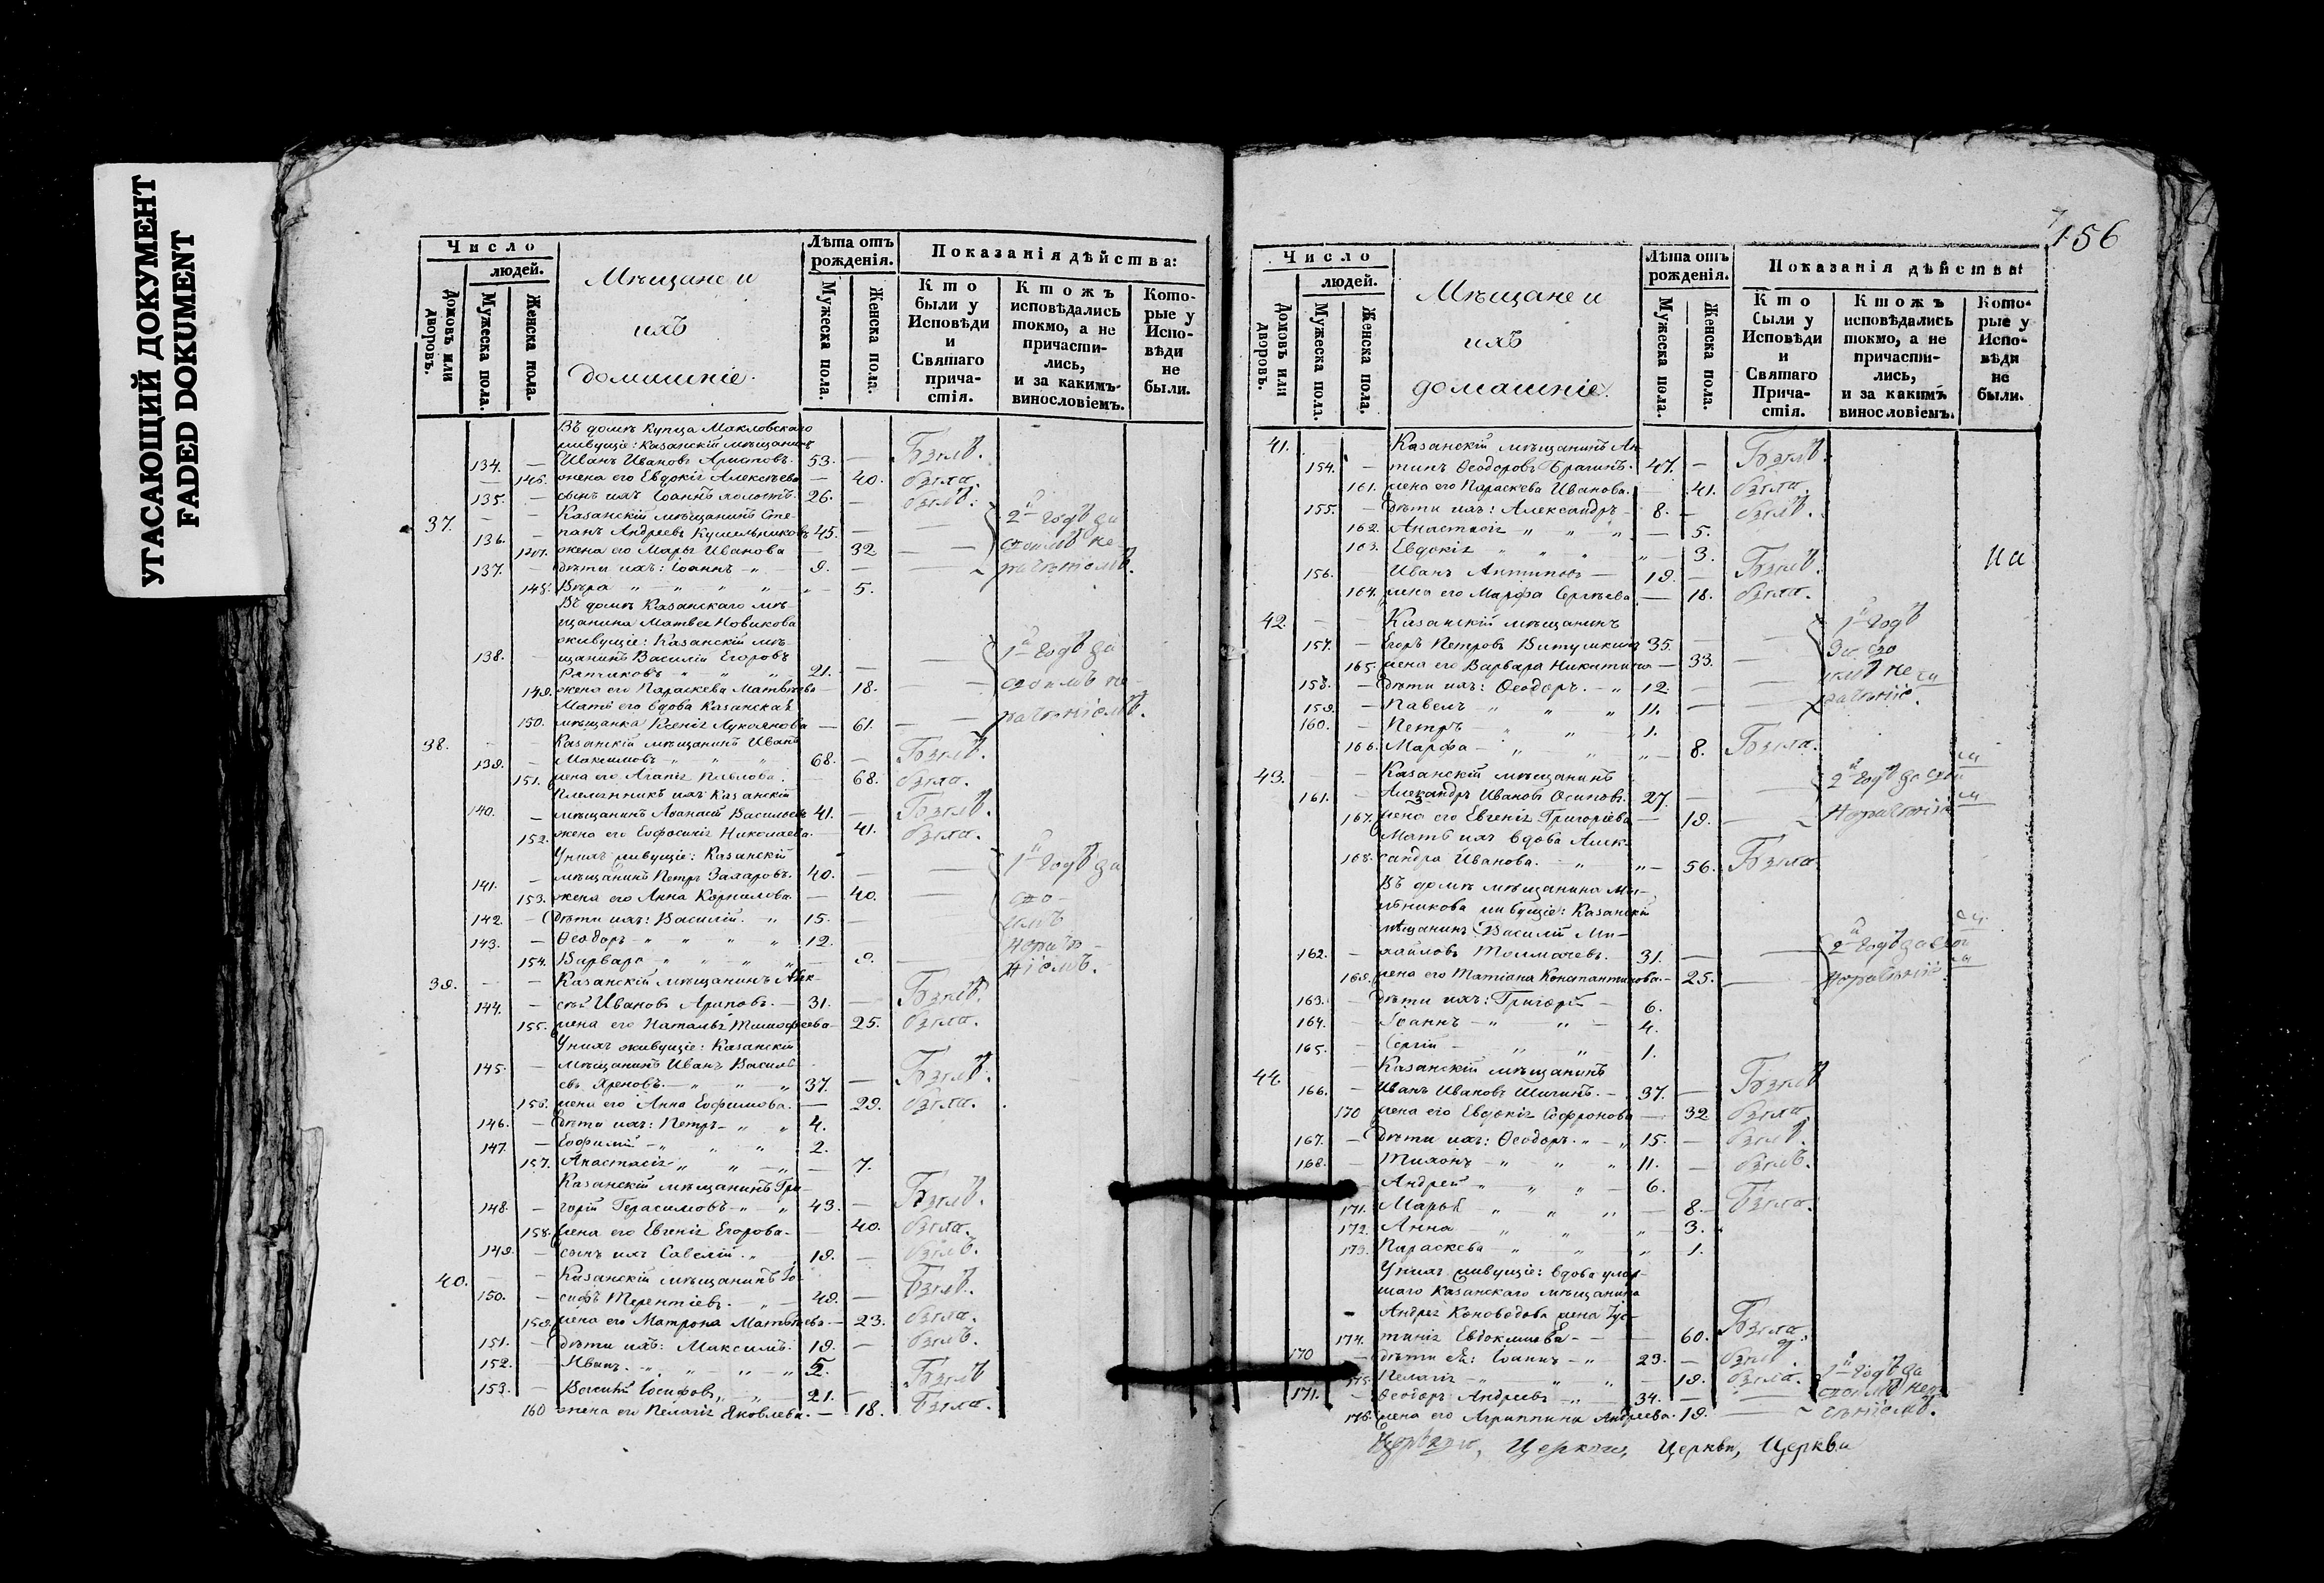 УГАСАЮЩИЙ ДОКУМЕНТ
FADED DOKUMENT
Число
людей.
Домовъ или дворовъ.
Мужеска пола.
Женска пола.
Мѣщане и
ихъ
домашніе.
Лѣта отъ рожденія.
Мужеска пола.
Женска пола.
Показанія дѣйства:
Кто были у Исповѣди и Святаго причастія.
Ктожъ исповѣдались токмо, а не причастились, и за какимъ винословіемъ.
Которые у Исповѣди не были.
Въ домѣ купца Макловскаго
живущіе: Казанскій мѣщанинъ
134. — Иванъ Ивановъ Ариповъ. 53. — Бзылъ.
— 146. жена его Евдокія Алексѣева — 40. была.
135. — сынъ ихъ Іоаннъ холостъ. 26. — былъ.
37. — — Казанскій мѣщанинъ Сте-
136. — панъ Андреевъ 45. — — 2й годъ за
жена его Марья Иванова — 32 — — своимъ не-
137. — дѣти ихъ: Іоаннъ — 9. — — радѣніемъ.
148. Вѣра — 5.
Въ домѣ Казанскаго мѣ-
щанина Матвея Новикова
живущіе: Казанскій мѣ-
138. — щанинъ Василій Егоровъ — 1й годъ за
21. —
149. жена его Параскева Матвѣева — 18. — — своимъ не-
Мать его вдова Казанская
150. мѣщанка Ксенія Лукоянова — 61. — — радѣніемъ.
38. — — Казанскій мѣщанинъ Иванъ
139. — Максимовъ 68. — Былъ.
151. жена его Агапія Павлова. — 68. была.
Племянникъ ихъ Казанскій
140. — мѣщанинъ Аѳанасій Васильевъ 41. — Былъ.
152. жена его Евфосинія Николаева. — 41. была.
У нихъ живущіе: Казанскій
141. — мѣщанинъ Петръ Захаровъ. 40. — — 1й годъ за
153. жена его Анна Корнилова. — 40. — сво-
142. — дѣти ихъ: Василій. 15. — имъ
143. — Ѳеодоръ 12. —
154. Варвара — 9. —
39. — — Казанскій мѣщанинъ Алек-
144. — сѣй Ивановъ Ариповъ. — 31. — Былъ.
155. жена его Наталья Тимофеева — 25. была.
У нихъ живущіе: Казанскій
145. — мѣщанинъ Иванъ Василь-
евъ Хреновъ. 37. — Былъ.
156. жена его Анна Евфимова. — 29. была.
146. — дѣти ихъ: Петръ 4.
147. — Евфимій 2.
157. Анастасія — 7.
Казанскій мѣщанинъ Гри-
148. — горій Герасимовъ 43. — Былъ.
158. жена его Евгенія Егорова — 40. была.
149. — сынъ ихъ Савелій. 19. — былъ.
40. — — Казанскій мѣщанинъ Іо-
150. — сифъ Терентіевъ. 49. — Былъ.
159. жена его Матрона Матвѣева — 23. была.
151. — дѣти ихъ: Максимъ. 19. — былъ.
152. — Иванъ. 5.
153. — Василій Іосифовъ 21. — Былъ
160 жена его Пелагія Яковлева. — 18. Была.
156
Число
людей.
Домовъ или дворовъ.
Мужеска пола.
Женска пола.
Мѣщане и
ихъ
домашніе.
Лѣта отъ рожденія.
Мужеска пола.
Женска пола.
Показанія дѣйства:
Кто были у Исповѣди и Святаго Причастія.
Ктожъ исповѣдались токмо, а не причастились, и за какимъ винословіемъ.
Которые у Исповѣди не были.
41. — Казанскій мѣщанинъ Ан-
154. — типъ Ѳеодоровъ Брагинъ. 47. — Былъ.
161. жена его Параскева Иванова. — 41. была.
155. — дѣти ихъ: Александръ 8. — былъ.
162. Анастасія — 5.
163. Евдокія — 3.
156. Иванъ Антиповъ — 19. — Былъ.
164. жена его Марфа Сергѣева — 18. была.
42. — — Казанскій мѣщанинъ 1й годъ
157. — Егоръ Петровъ 35. — — за сво
165. жена его Варвара Никитина — 33. — имъ не
158. — дѣти ихъ: Ѳеодоръ. 12. — — радѣніе.
159. — Павелъ 11. — —
160. — Петръ 1.
166. Марфа — 8. Была.
43. — — Казанскій мѣщанинъ
161. — Александръ Ивановъ Осиповъ. 27. — — 2й годъ за свои
167. жена его Евгенія Григоріева — 19. —
Мать ихъ вдова Алек-
168. сандра Иванова. — 56. Была
Въ домѣ мѣщанина
живущіе: Казанскій
мѣщанинъ Василій Ми-
162. — хайловъ Толмачевъ. 31. — — 2й годъ за свои
169. жена его Татіана Константинова — 25. —
163. — дѣти ихъ: Григорій — 6.
164. — Іоаннъ 4.
165. — Сергій 1.
44. — — Казанскій мѣщанинъ
166. — Иванъ Ивановъ Шигинъ. 37. — Былъ
170 жена его Евдокія Софронова — 32 была.
167. — дѣти ихъ: Ѳеодоръ. 15. — былъ.
168. — Тихонъ 11. — былъ.
Андрей 6.
171. Марья — 8. Была.
172. Анна 3.
173. Параскева 1.
У нихъ живущіе: вдова умер-
шаго Казанскаго мѣщанина
Андрея Коноводова жена Іус-
174. тинія Евдокимова — — 60. Была.
170 — дѣти ея: Іоаннъ 23. — былъ.
175. Пелагія — 19. была. 1й годъ за
171. — Ѳеодоръ Андреевъ 34. — — своимъ нера-
176. жена его Агриппина Андреева. 19. —
Церкви, Церкви, Церкви